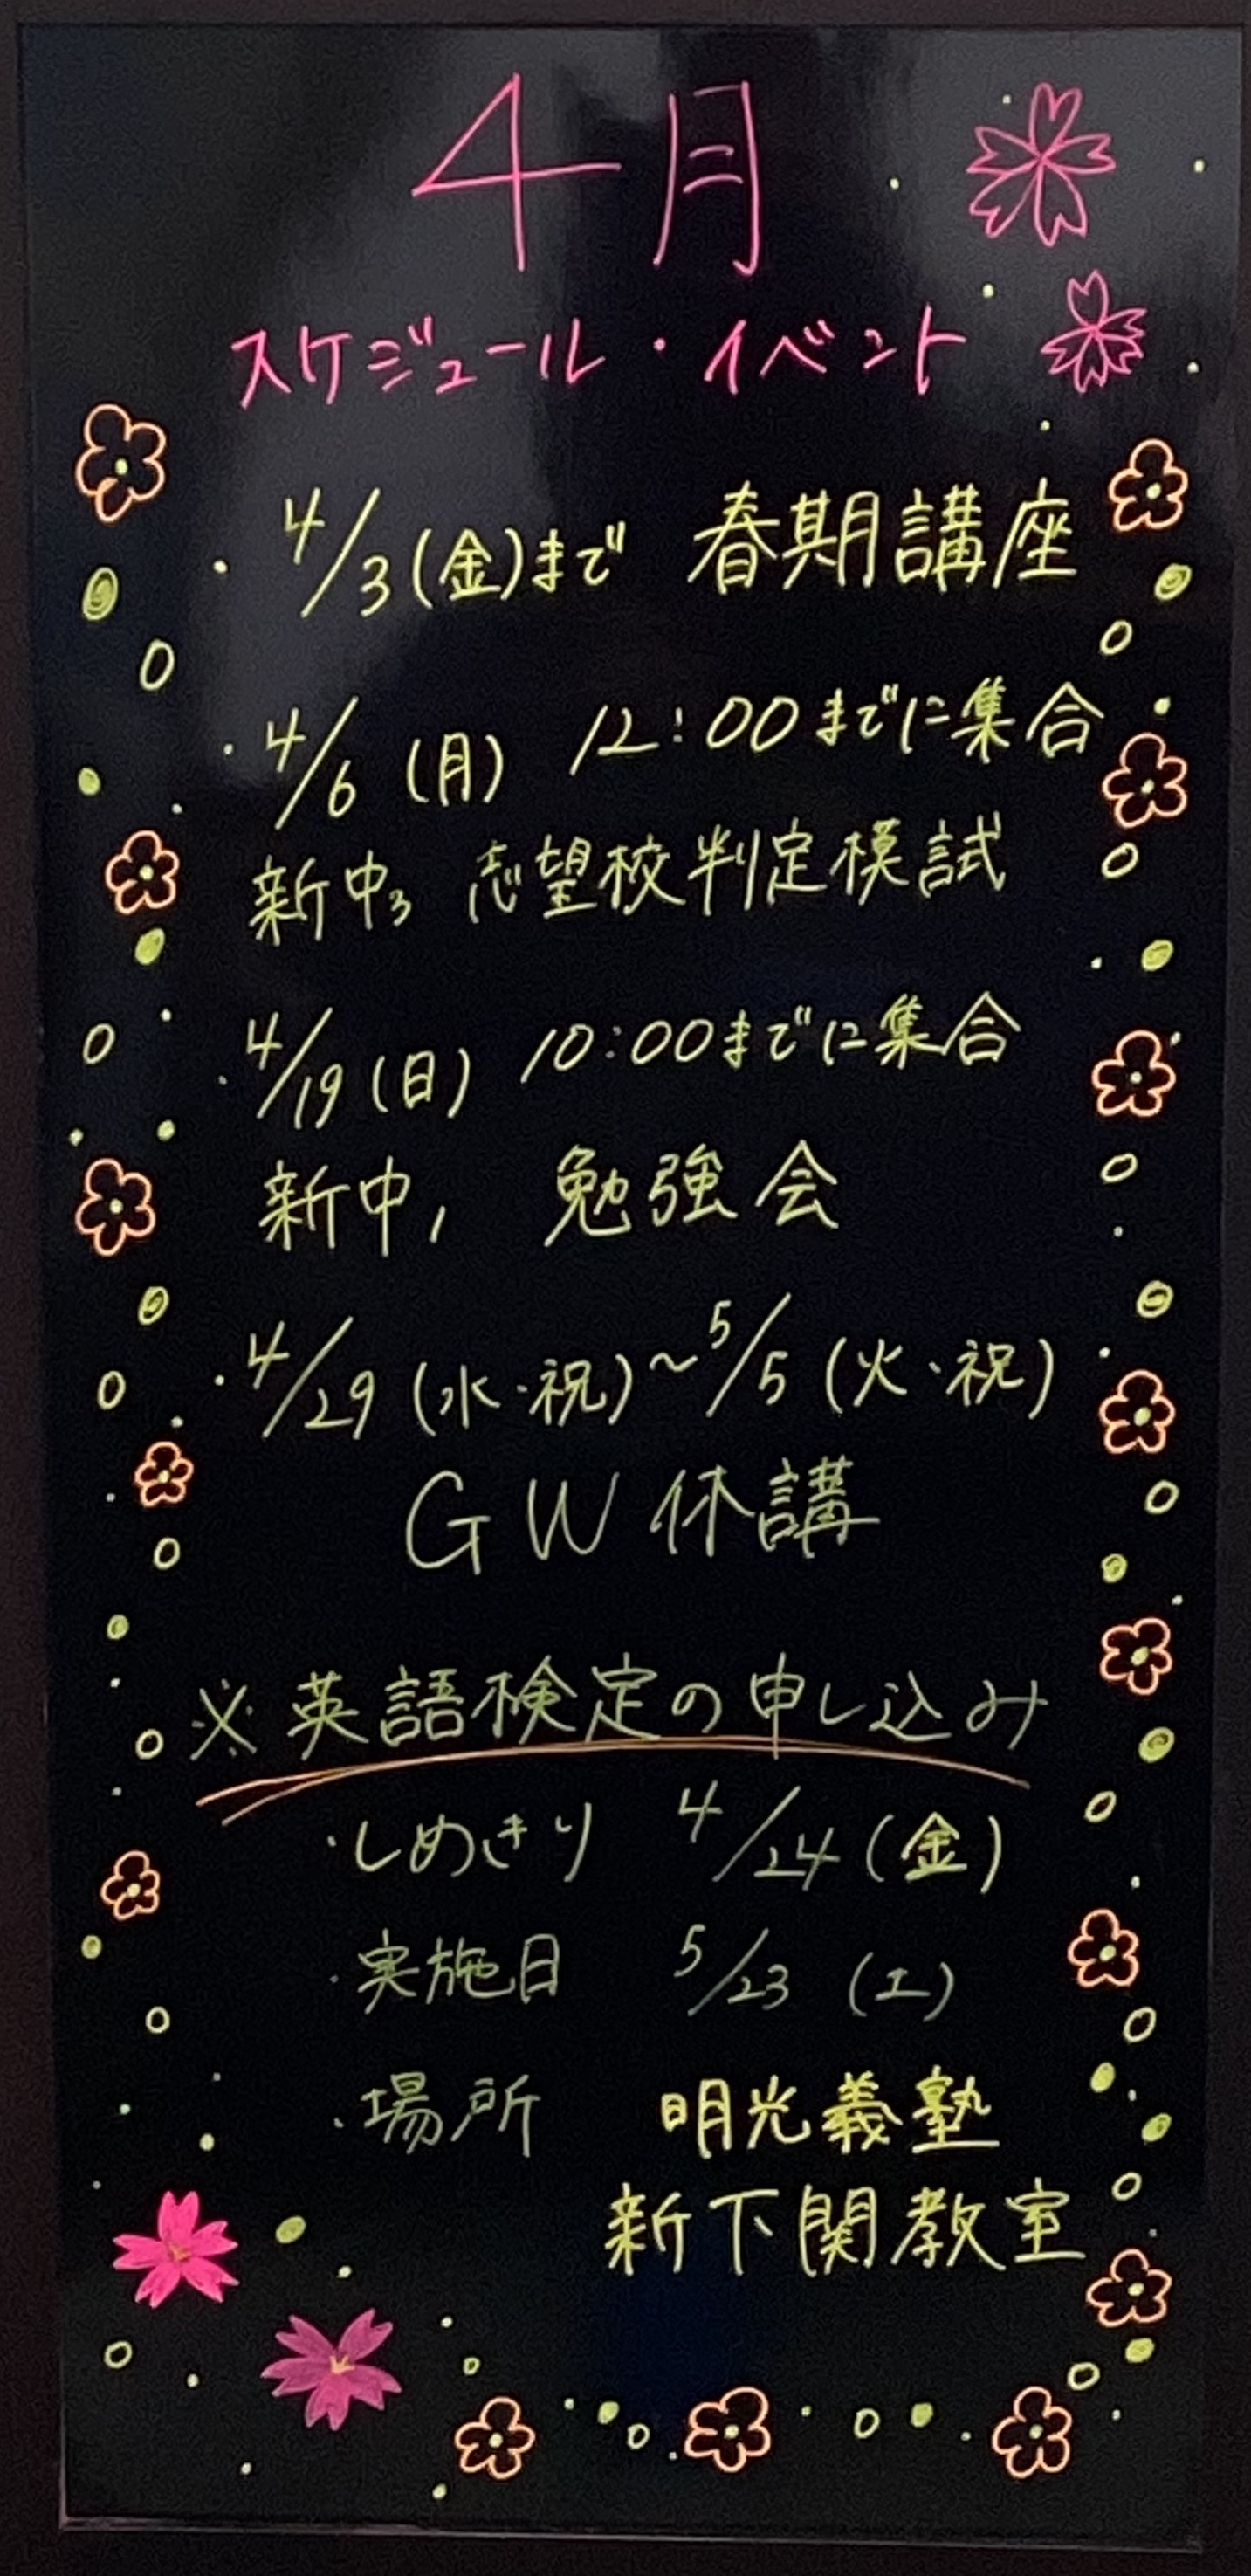 4月
スケジュール・イベント
・4/3(金)まで 春期講座
・4/6(月) 12:00までに集合
新中3 志望校判定模試
・4/19(日) 10:00までに集合
新中1 勉強会
・4/29(水・祝)~5/5(火・祝)
GW休講
※英語検定の申し込み
・しめきり 4/24(金)
・実施日 5/23(土)
・場所 明光義塾
新下関教室